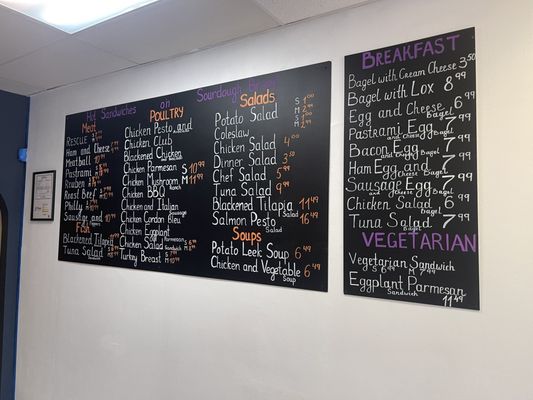 Hot Sandwiches on Sourdough Bread
Meat
RESCUE
Ham and Cheese
Meatball
Pastrami
Ruben
Roast Beef
Philly
Sausage
Fish
Blackened Tilapia
Tuna Salad
POULTRY
Chicken Pesto and
Chicken Club
Blackened Chicken
Chicken Parmesan S 10.99
Chicken Mushroom, Ranch M 11.99
Chicken BBQ
Chicken and Italian Sausage
Chicken Gordon Bleu
Chicken Eggplant Parmesan
Chicken Salad Sandwich
Turkey Breast
Salads
Potato Salad S 1.00 M 2.99
Coleslaw S 1.00 M 2.99
Chicken Salad 4.00
Dinner Salad 3.50
Chef Salad 5.99
Tuna Salad 9.99
Blackened Tilapia Salad 10.99
Salmon Pesto Salad 16.49
Soups
Potato Leek Soup 6.49
Chicken and Vegetable Soup 6.49
BREAKFAST
Bagel with Cream Cheese 3.50
Bagel with Lox 8.99
Egg and Cheese Bagel 6.99
Pastrami Egg and Cheese Bagel 7.99
Bacon Egg and Cheese Bagel 7.99
Ham Egg and Cheese Bagel 7.99
Sausage Egg and Cheese Bagel 7.99
Chicken Salad Bagel 6.99
Tuna Salad Bagel 7.99
VEGETARIAN
Vegetarian Sandwich
S 6.49 M 7.99
Eggplant Parmesan
Sandwich 11.49